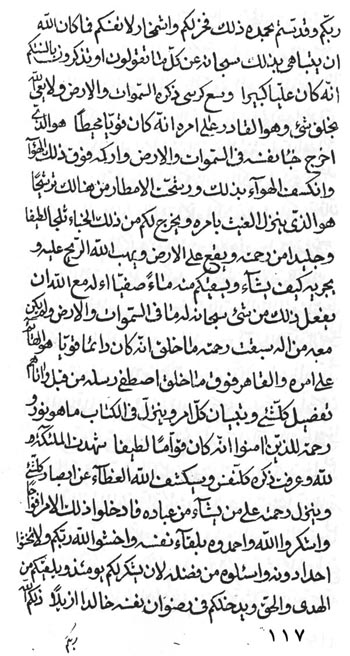 ربكم وقدستم بحمده ذلك فخر لكم وافتخار لانفسكم فما كان الله
ان يتباهى بذلك سبحانه عن كل ما تقولون او تذكرون
انه كان عليا كبيرا وسع كرسي ذكره السموات والارض ولا
يخلق شئ وهو القادر على امره انه كان قويا محيطا هو الذي
اخرج نفسه في السموات والارض واركه فوق ذلك الهواء
وانكسف الهواء بذلك ورشحت الامطار من هنالك ترشحا
هو الذي ينزل الغيث بامره ويخرج لكم من ذلك الخباء ثلجا لطيفا
وجليدا من رحمته ويقع على الارض ويهب الله الريح عليه و
يجريه كيف يشاء ويسقيكم منه ماء صفيا ءاله مع الله ان
يفعل ذلك من شئ سبحانه له ما في السموات والارض ولم يكن
معه من اله سبقت رحمته ما خلق انه كان دائما قويا هو
على امره والقاهر فوق ما خلق اصطفى رسله من قبل واتاهم
تفصيل كلشئ وتبيان كل امر وينزل في الكتاب ما هو نور و
رحمة للذين امنوا انه كان قواما لطيفا شهدت الملئكة
لله وعرف ذكره كل نفس وسيكشف الله الغطاء عن ابصار كلشئ
وينزل رحمته على من يشاء من عباده فادخلوا ذلك الامر
واشكروا الله واحمدوه بلقاء نفسه واخشوا الله ربكم ولا تخشوا
احدا دونه واسئلوه من فضله لان يشكر بكم يومئذ ويلقيكم من
الهدى والحق ويدخلكم في رضوان نفسه خالدا ازلا ذلكم الله
١١٧
ربكم